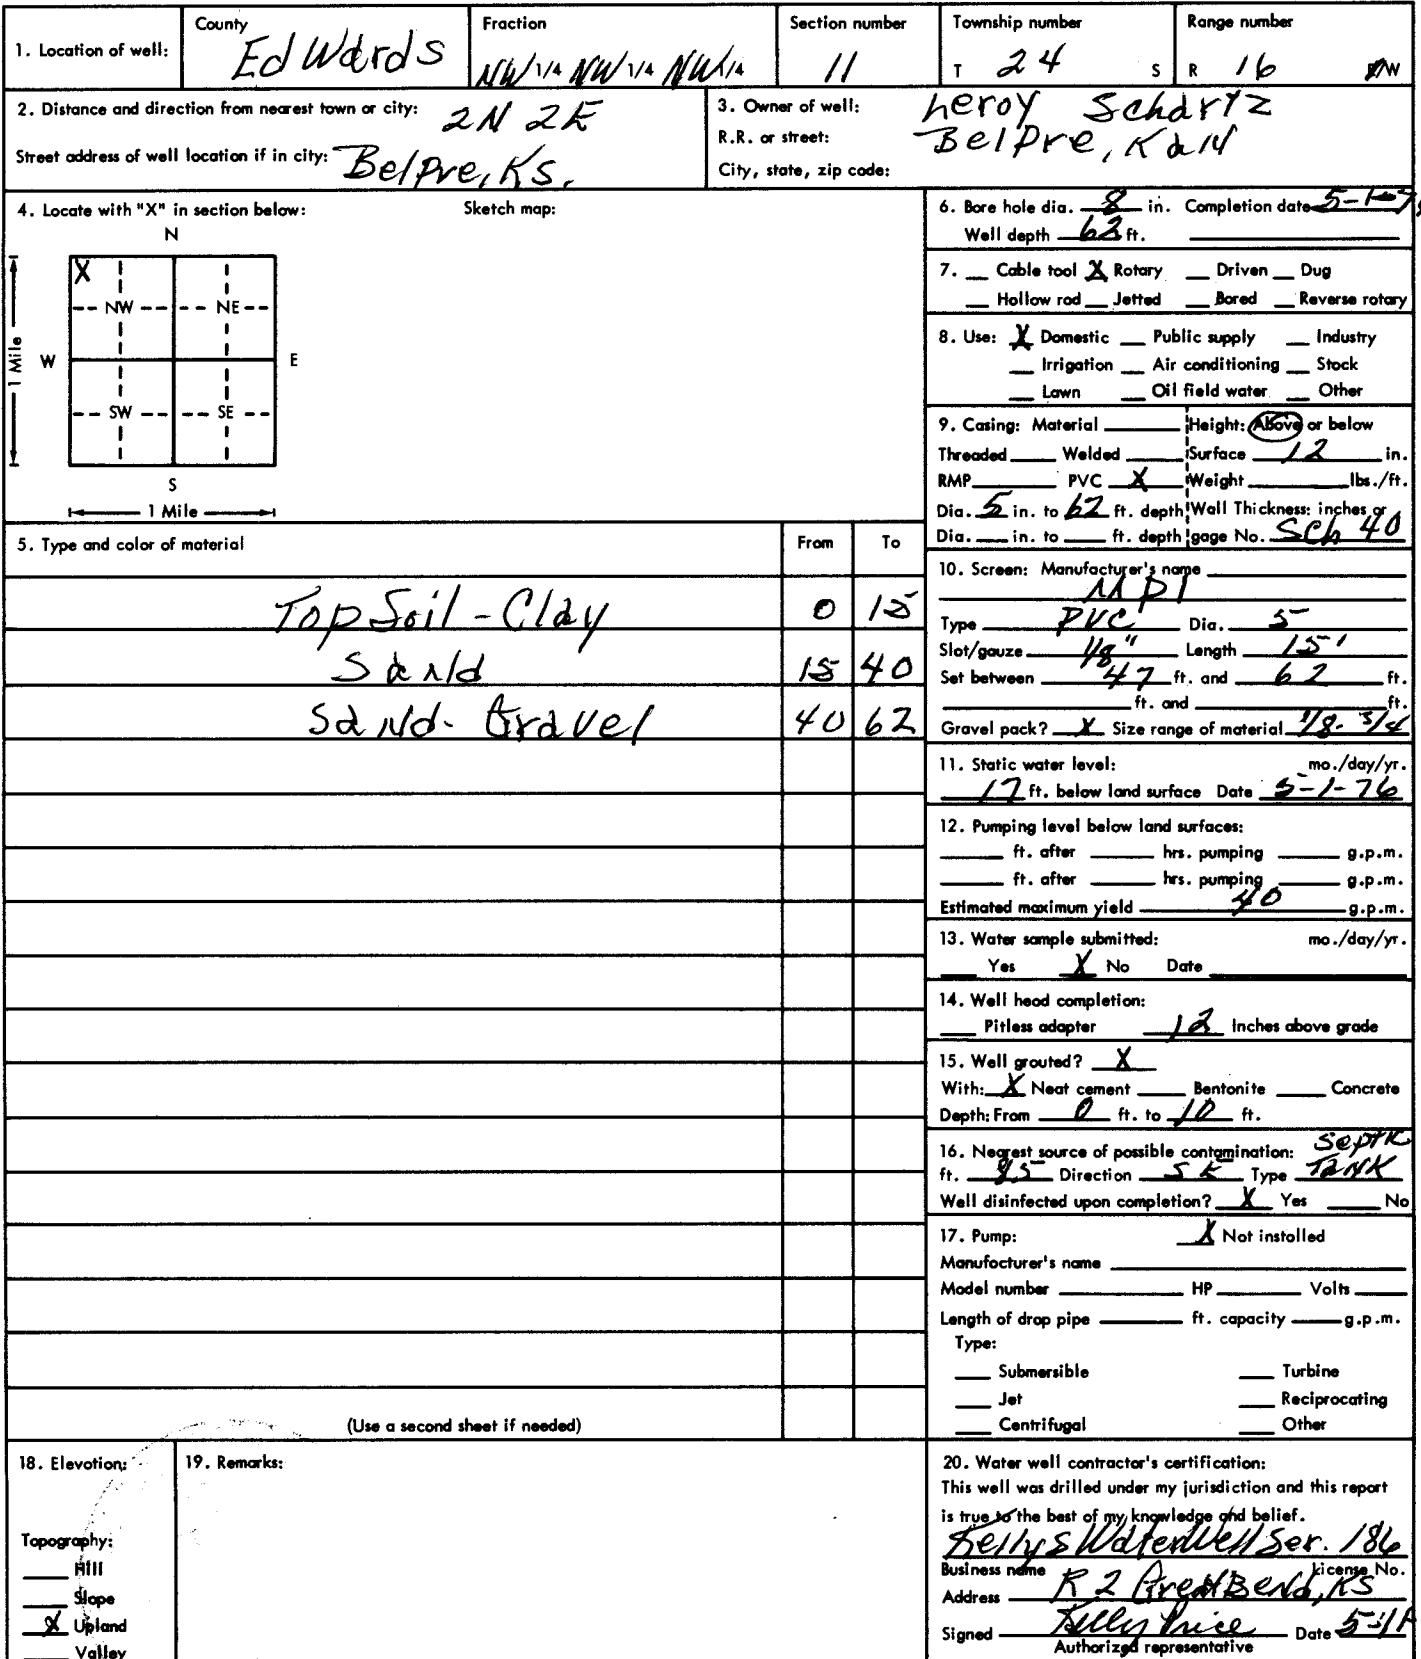 1. Location of well: County EdWards Fraction NW 1/4 NW 1/4 NW 1/4 Section number 11 Township number T 24 S Range number R 16 E/W
2. Distance and direction from nearest town or city: 2N 2E
Street address of well location if in city: Belpre, Ks.
3. Owner of well: Leroy Schartz
R.R. or street: Belpre, Kan
City, state, zip code:
4. Locate with "X" in section below: Sketch map:
N
X
NW NE
W E
1 Mile
SW SE
S
1 Mile
5. Type and color of material From To
Top Soil - Clay 0 15
Sand 15 40
Sand - Gravel 40 62
(Use a second sheet if needed)
6. Bore hole dia. 8 in. Completion date 5-1-
Well depth 62 ft.
7. Cable tool X Rotary Driven Dug
Hollow rod Jetted Bored Reverse rotary
8. Use: X Domestic Public supply Industry
Irrigation Air conditioning Stock
Lawn Oil field water Other
9. Casing: Material Height: Above or below
Threaded Welded Surface 12 in.
RMP PVC X Weight lbs./ft.
Dia. 5 in. to 62 ft. depth Wall Thickness: inches or
Dia. in. to ft. depth gage No. Sch 40
10. Screen: Manufacturer's name
MPI
Type PVC Dia. 5
Slot/gauze 1/8" Length 15'
Set between 47 ft. and 62 ft.
ft. and ft.
Gravel pack? X Size range of material 1/8 - 3/4
11. Static water level: mo./day/yr.
17 ft. below land surface Date 5-1-76
12. Pumping level below land surfaces:
ft. after hrs. pumping g.p.m.
ft. after hrs. pumping g.p.m.
Estimated maximum yield 40 g.p.m.
13. Water sample submitted: mo./day/yr.
Yes X No Date
14. Well head completion:
Pitless adapter 12 Inches above grade
15. Well grouted? X
With: X Neat cement Bentonite Concrete
Depth: From 0 ft. to 10 ft.
16. Nearest source of possible contamination: Septic
ft. Direction SE Type Tank
Well disinfected upon completion? X Yes No
17. Pump: X Not installed
Manufacturer's name
Model number HP Volts
Length of drop pipe ft. capacity g.p.m.
Type:
Submersible Turbine
Jet Reciprocating
Centrifugal Other
18. Elevation:
Topography:
Hill
Slope
X Upland
Valley
19. Remarks:
20. Water well contractor's certification:
This well was drilled under my jurisdiction and this report
is true to the best of my knowledge and belief.
Kellys Water Well Ser. 186
Business name License No.
Address R 2 Great Bend, Ks
Signed Kelly Price Date
Authorized representative